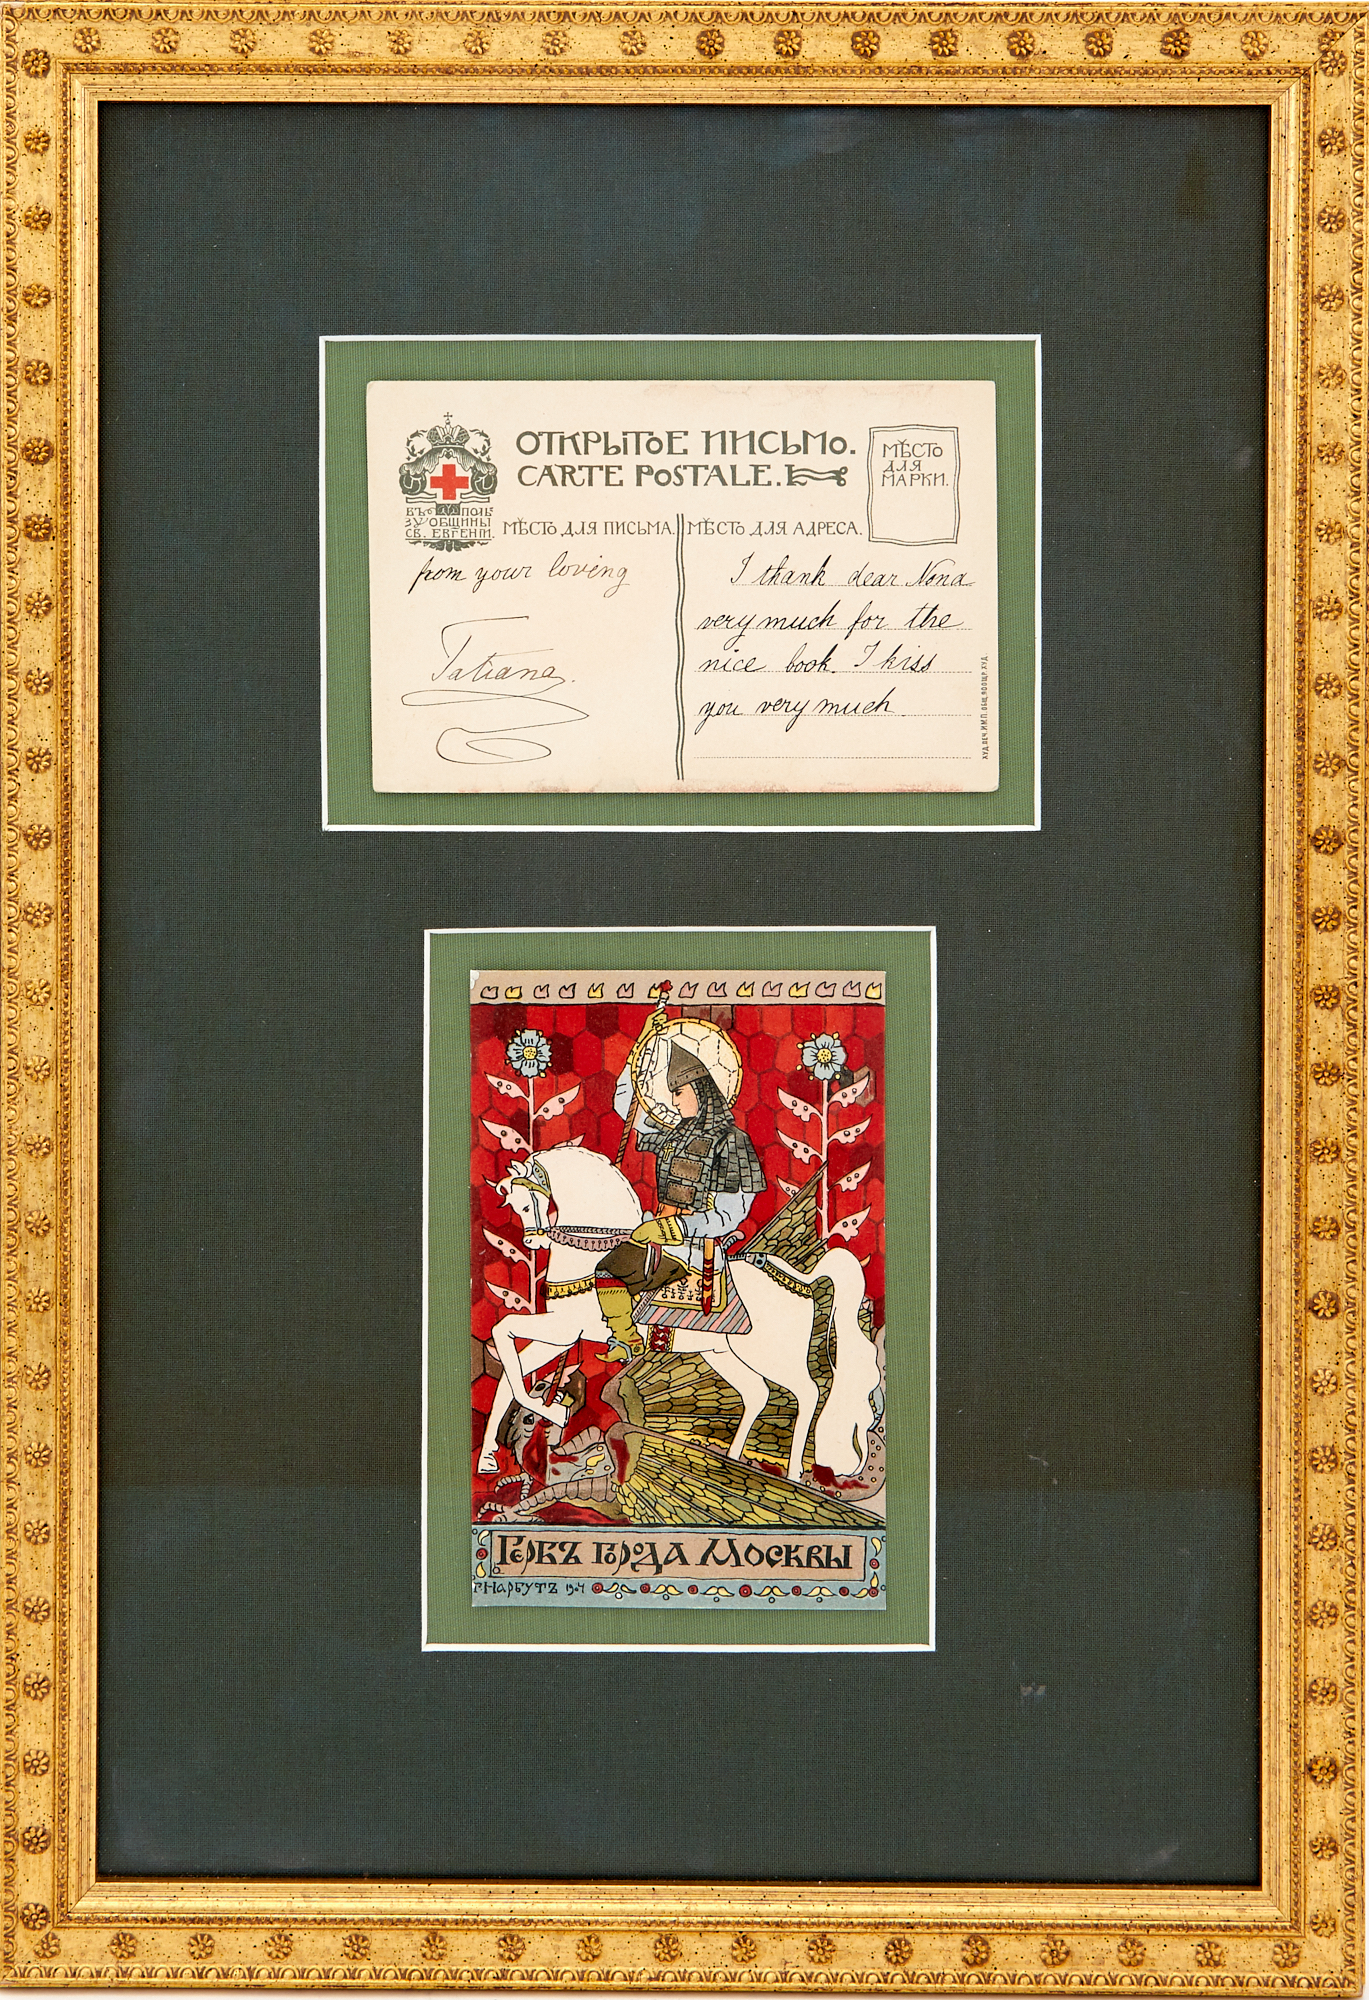 ОТКРЫТОЕ ПИСЬМО.
CARTE POSTALE.
МѢСТО
ДЛЯ
МАРКИ.
ВЪ ПОЛЬ
ЗУ ОБЩИНЫ
СВ. ЕВГЕНІИ.
МѢСТО ДЛЯ ПИСЬМА.
МѢСТО ДЛЯ АДРЕСА.
from your loving
Tatiana.
I thank dear Nona
very much for the
nice book. I kiss
you very much
ХУД. ПЕЧ. ИМП. ОБЩ. ПООЩР. ХУД.
Гербъ города Москвы
Г. Нарбутъ 1904